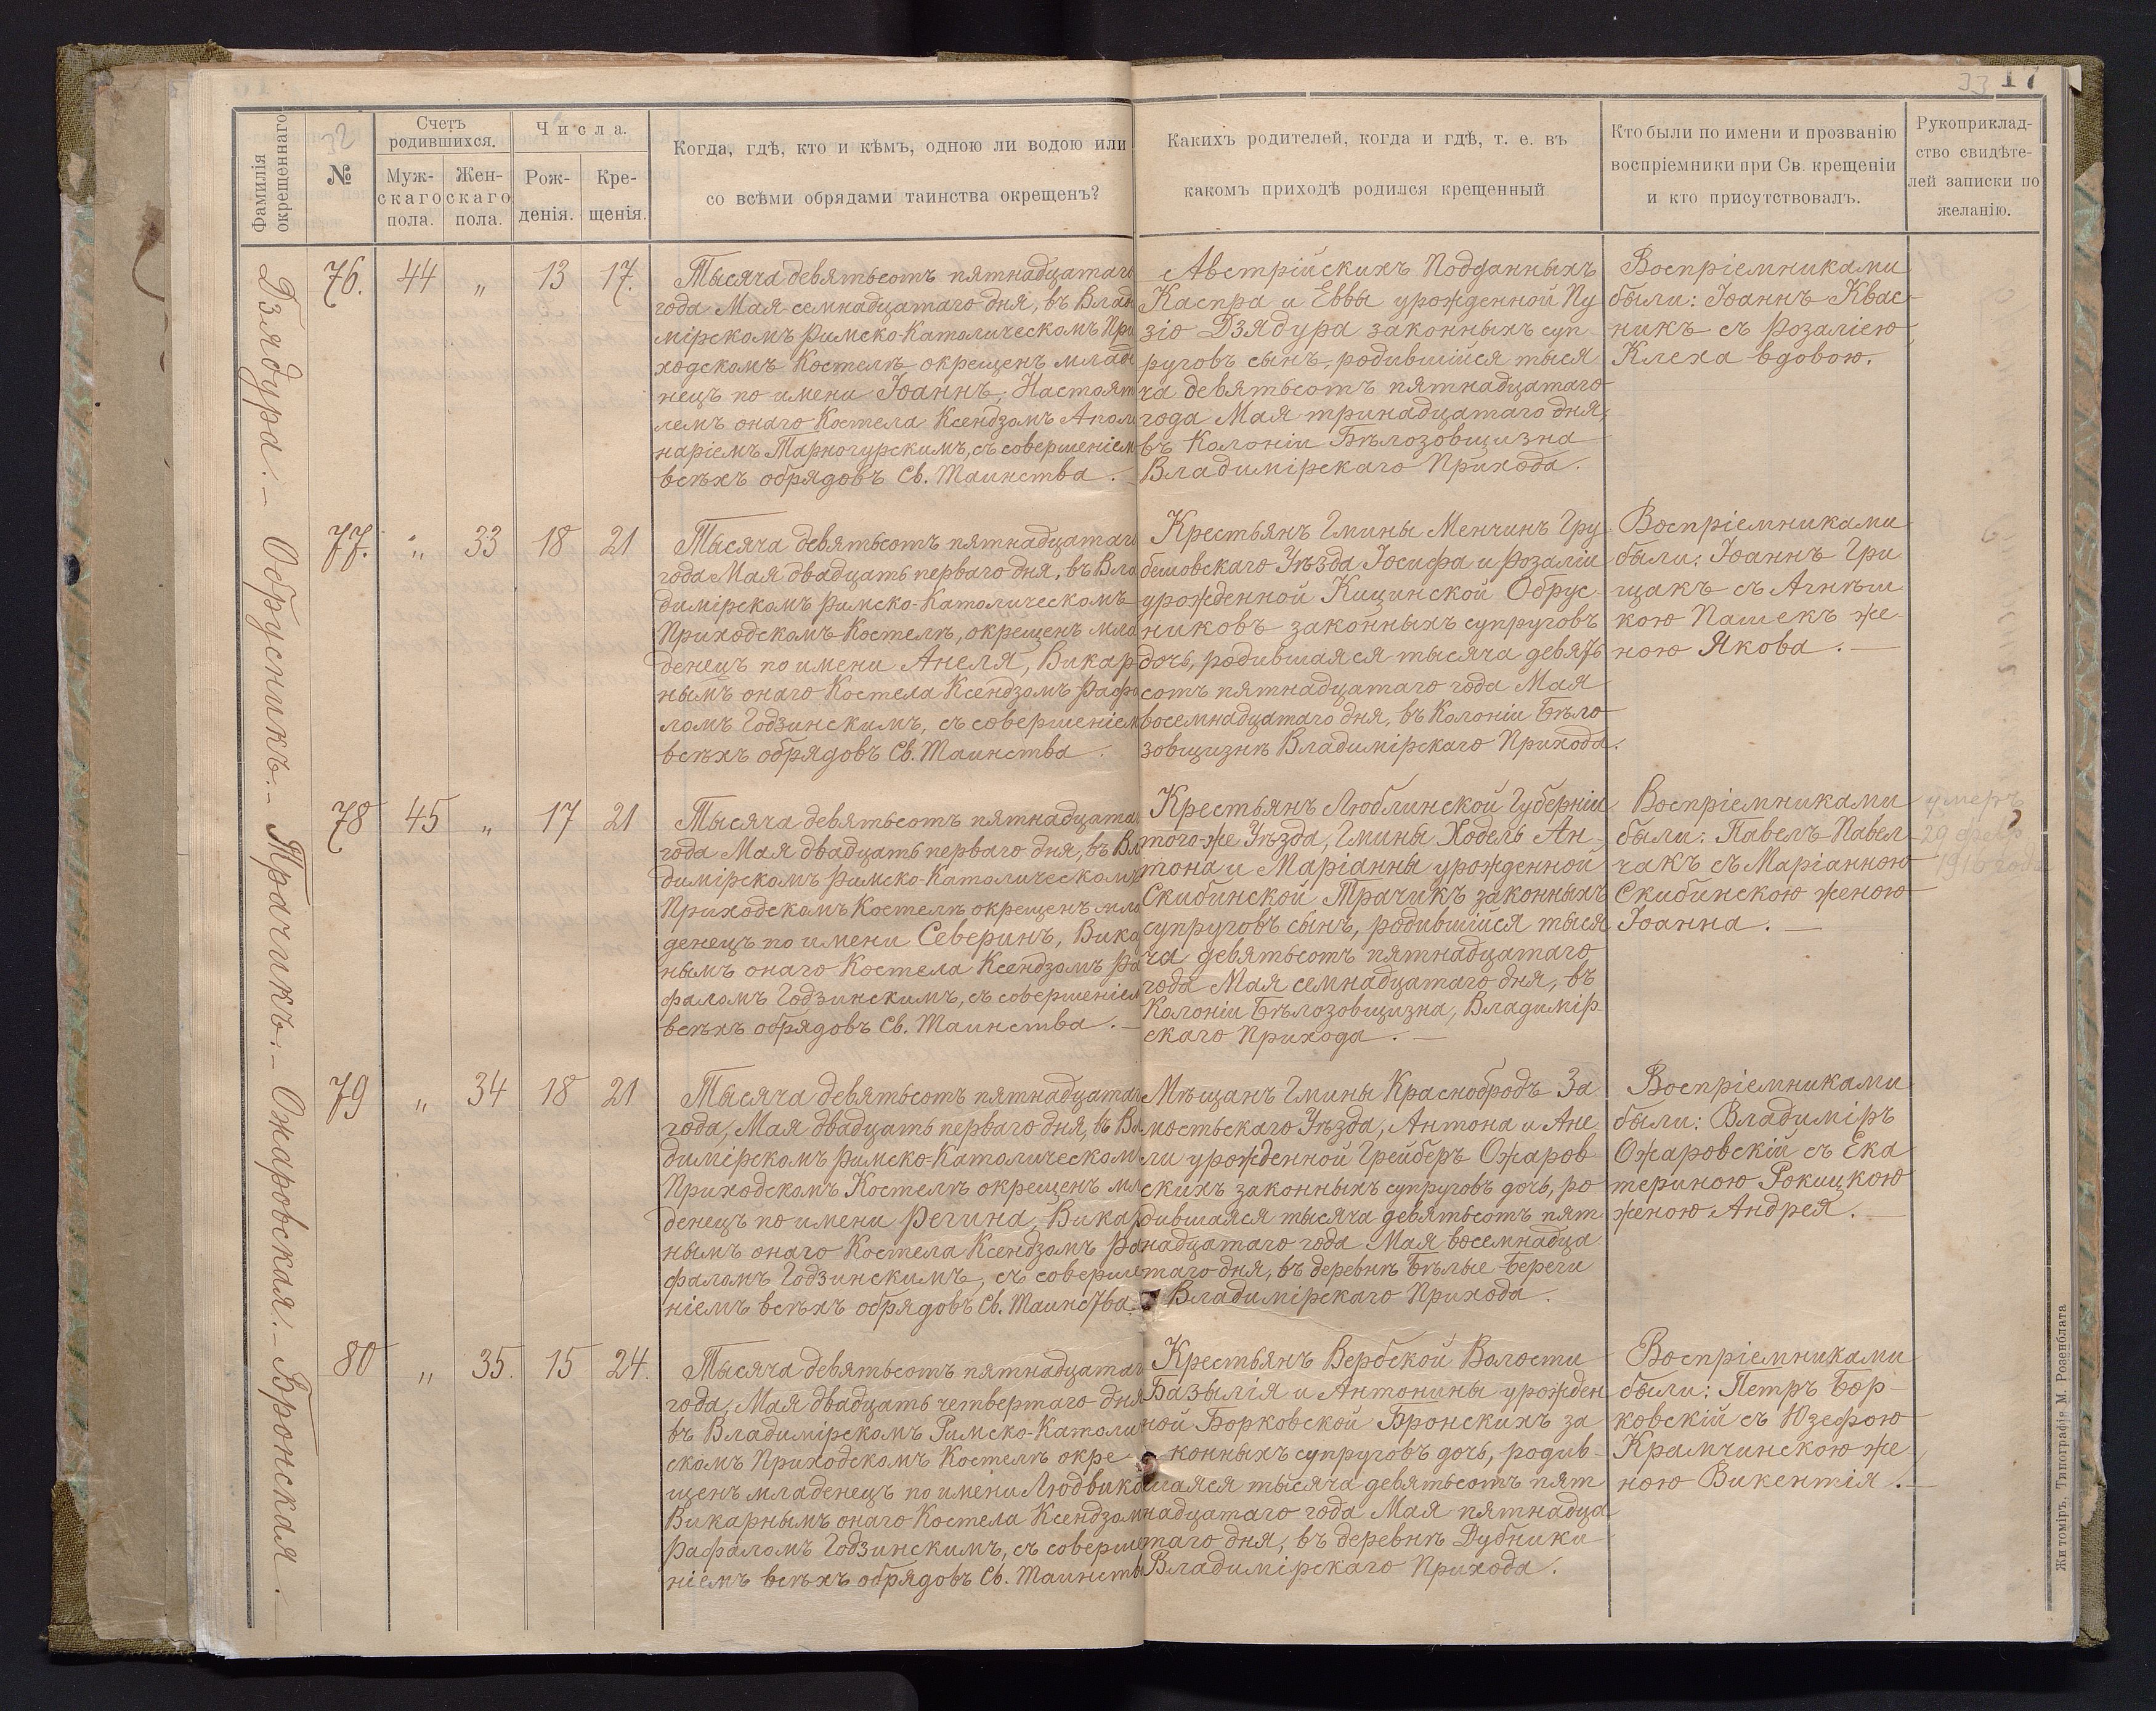 33 17
Фамилія
окрещеннаго
32
№
Счетъ
родившихся.
Муж-
скаго
пола.
Жен-
скаго
пола.
Числа.
Рож-
денія.
Кре-
щенія.
Когда, гдѣ, кто и кѣмъ, одною ли водою или
со всѣми обрядами таинства окрещенъ?
Какихъ родителей, когда и гдѣ, т. е. въ
какомъ приходѣ родился крещенный
Кто были по имени и прозванію
воспріемники при Св. крещеніи
и кто присутствовалъ.
Рукоприклад-
ство свидѣте-
лей записки по
желанію.
Дзядура. –
76. 44 „ 13 17.
Тысяча девятьсотъ пятнадцатаго
года Мая семнадцатаго дня, въ Влад
мірскомъ Римско-Католическомъ При
ходскомъ Костелѣ окрещенъ млад
нецъ по имени Іоаннъ, Настоят
лемъ онаго Костела Ксендзомъ Апол
наріемъ Тарногурскимъ, съ совершеніем
всѣхъ обрядовъ Св. Таинства. –
Австрійскихъ Подданныхъ
Каспра и Еввы урожденной Пу
зіо Дзядура законныхъ суп-
руговъ сынъ, родившійся тыся
ча девятьсотъ пятнадцатаго
года Мая тринадцатаго дня,
въ Колоніи Бѣлозовщизна
Владимірскаго Прихода.
Воспріемниками
были: Іоаннъ Квас-
никъ съ Розаліею
Клеха вдовою.
Обрусникъ. –
77. „ 33 18 21
Тысяча девятьсотъ пятнадцатаго
года Мая двадцать перваго дня, въ Вла
димірскомъ Римско-Католическомъ
Приходскомъ Костелѣ, окрещенъ мла
денецъ по имени Анеля, Викар
нымъ онаго Костела Ксендзомъ Рафа
ломъ Годзинскимъ, съ совершеніем
всѣхъ обрядовъ Св. Таинства.
Крестьянъ Гмины Менчинъ Гру
бешовскаго Уѣзда Іосифа и Розаліи
урожденной Кицинской Обрус-
никовъ законныхъ супруговъ
дочь, родившаяся тысяча девять
сотъ пятнадцатаго года Мая
восемнадцатаго дня, въ Колоніи Бѣло
зовщизнѣ Владимірскаго Прихода.
Воспріемниками
были: Іоаннъ Гри
щакъ съ Агнѣш
кою Пашекъ же-
ною Якова. –
Трачикъ. –
78 45 „ 17 21
Тысяча девятьсотъ пятнадцата
года Мая двадцать перваго дня, въ Вл
димірскомъ Римско-Католическомъ
Приходскомъ Костелѣ окрещенъ мла
денецъ по имени Северинъ, Вика
нымъ онаго Костела Ксендзомъ Ра
фаломъ Годзинскимъ, съ совершеніем
всѣхъ обрядовъ Св. Таинства. –
Крестьянъ Люблинской Губерніи
того-же Уѣзда, Гмины Ходель Ан-
тона и Маріанны урожденной
Скибинской Трачикъ законныхъ
супруговъ сынъ, родившійся тыся
ча девятьсотъ пятнадцатаго
года Мая семнадцатаго дня, въ
Колоніи Бѣлозовщизна, Владимір-
скаго Прихода. –
Воспріемниками
были: Павелъ Павел-
чакъ съ Маріанною
Скибинскою женою
Іоанна. –
умеръ
29
1916 года
Ожаровская. –
79 „ 34 18 21
Тысяча девятьсотъ пятнадцатаг
года, Мая двадцать перваго дня, въ Вл
димірскомъ Римско-Католическом
Приходскомъ Костелѣ окрещенъ мл
денецъ по имени Регина, Викар
нымъ онаго Костела Ксендзомъ Ра
фаломъ Годзинскимъ, съ соверше
ніемъ всѣхъ обрядовъ Св. Таинства.
Мѣщанъ Гмины Краснобродъ За
мостьскаго Уѣзда, Антона и Ане
ли урожденной Грейберъ Ожаров-
скихъ законныхъ супруговъ дочь, ро
дившаяся тысяча девятьсотъ пят
надцатаго года Мая восемнадца
таго дня, въ деревнѣ Бѣлые Береги
Владимірскаго Прихода.
Воспріемниками
были: Владиміръ
Ожаровскій съ Ека
териною Рокицкою
женою Андрея. –
Бронская. –
80 „ 35. 15 24.
Тысяча девятьсотъ пятнадцатаг
года, Мая двадцать четвертаго дня
въ Владимірскомъ Римско-Католи
скомъ Приходскомъ Костелѣ окре
щенъ младенецъ по имени Людвика
Викарнымъ онаго Костела Ксендзом
Рафаломъ Годзинскимъ, съ соверше
ніемъ всѣхъ обрядовъ Св. Таинств
Крестьянъ Вербской Волости
Базылія и Антонины урожден
ной Борковской Бронскихъ за
конныхъ супруговъ дочь, родив-
шаяся тысяча девятьсотъ пят
надцатаго года Мая пятнадца
таго дня, въ деревнѣ Дубники
Владимірскаго Прихода.
Воспріемниками
были: Петръ Бор-
ковскій съ Юзефою
Крамчинскою же
ною Викентія. –
Житоміръ, Типографія М. Розенблата